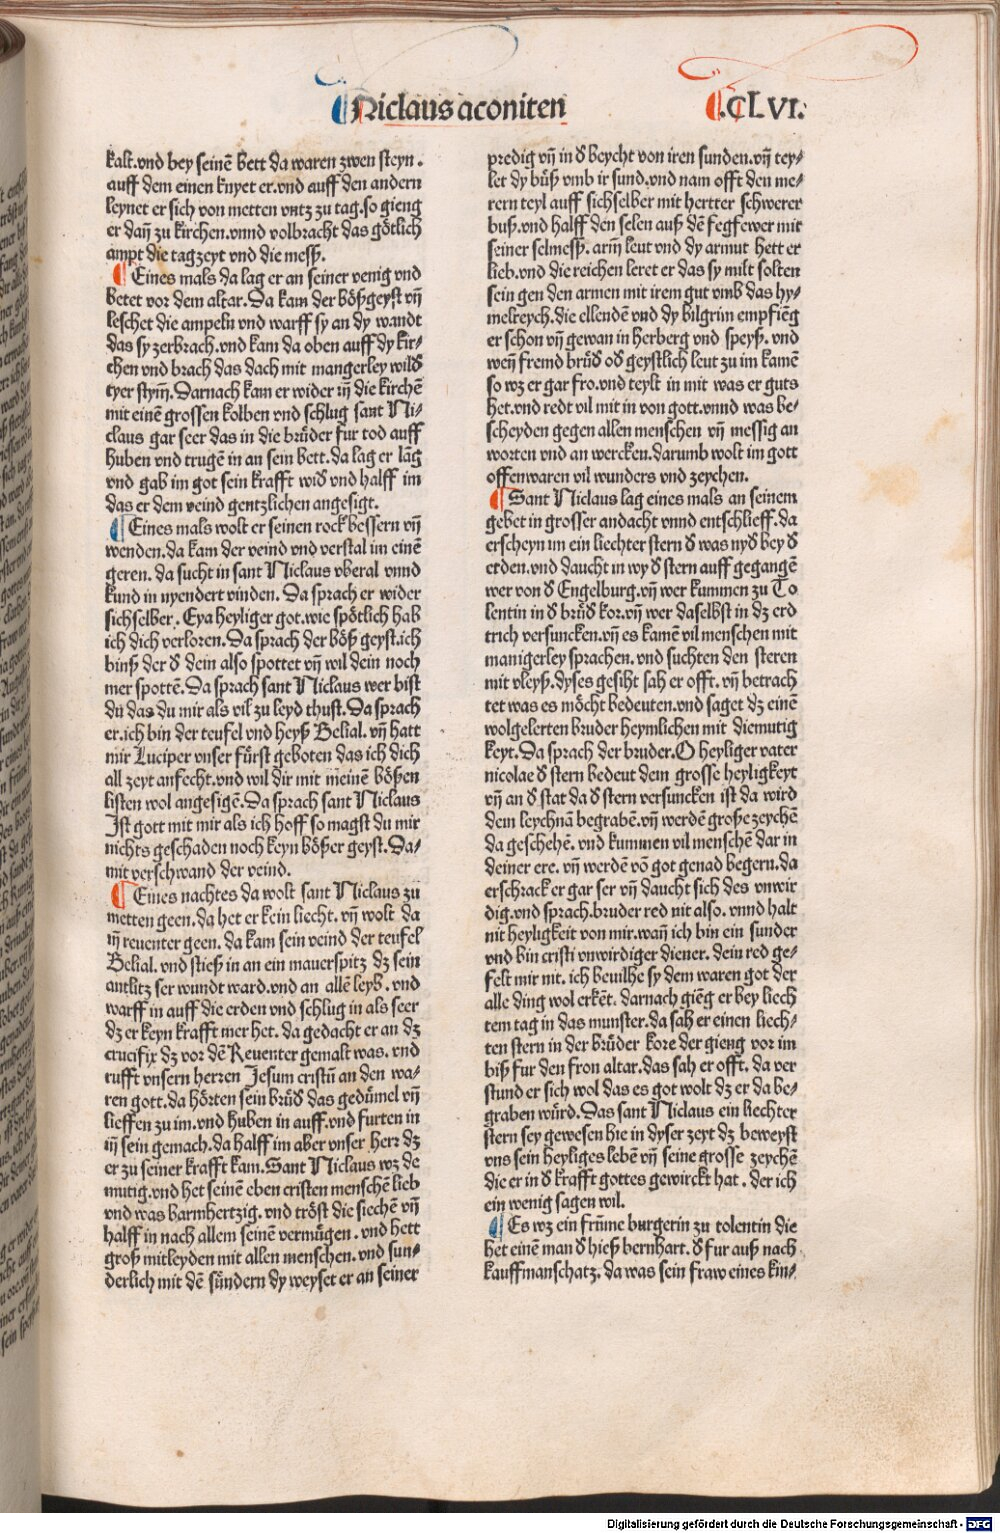 Niclaus aconiten
.CLVI.
kalt.vnd bey seinē bett da waren zwen steyn.
auff dem einen knyet er.vnd auff den andern
leynet er sich von metten vntz zu tag.so gieng
er dañ zu kirchen.vnnd volbracht das götlich
ampt die tagzeyt vnd die mesß.
Eines mals da lag er an seiner venig vnd
betet vor dem altar. Da kam der bößgeyst vñ
leschet die ampeln vnd warff sy an dy wandt
das sy zerbrach.vnd kam da oben auff dy kir⸗
chen vnd brach das dach mit mangerley wilď
tyer stym̃. Darnach kam er wider in̄ die kirchē
mit einē grossen kolben vnd schlug sant Ni⸗
claus gar seer das in die brüder fur tod auff
huben vnd trugē in an sein bett.da lag er lāg
vnd gab im got sein krafft wiď vnd halff im
das er dem veind gentzlichen angesigt.
Eines mals wolt er seinen rock bessern vñ
wenden.da kam der veind vnd verstal im einē
geren. da sucht in sant Niclaus vberal vnnd
kund in nyendert vinden. Da sprach er wider
sichselber. Eya heyliger got.wie spötlich hab
ich dich verloren. Da sprach der böß geyst.ich
binß der ď dein also spottet vñ wil dein noch
mer spottē. Da sprach sant Niclaus wer bist
du das du mir als vil zu leyd thust. Da sprach
er.ich bin der teufel vnd heyß Belial. vñ hatt
mir Luciper vnser fürst geboten das ich dich
all zeyt anfecht.vnd wil dir mit meinē bößen
listen wol angesigē. Da sprach sant Niclaus
Ist gott mit mir als ich hoff so magst du mir
nichts geschaden noch keyn bößer geyst. Da⸗
mit verschwand der veind.
Eines nachtes da wolt sant Niclaus zu
metten geen. da het er kein liecht. vñ wolt da
in̄ reuenter geen. da kam sein veind der teufel
Belial. vnd stieß in an ein mauerspitz dz sein
antlitz ser wundt ward.vnd an allē leyb. vnd
warff in auff die erden vnd schlug in als seer
dz er keyn krafft mer het. da gedacht er an dz
crucifix dz vor dē Reuenter gemalt was. vnd
rufft vnsern herren Jesum cristū an den wa⸗
ren gott.da hörten sein brüď das gedümel vñ
lieffen zu im.vnd huben in auff.vnd furten in
in̄ sein gemach.da halff im aber vnser herr dz
er zu seiner krafft kam. Sant Niclaus wz de
mutig.vnd het seinē eben cristen menschē lieb
vnd was barmhertzig. vnd tröst die siechē vñ
halff in nach allem seinē vermügen. vnd hett
groß mitleyden mit allen menschen. vnd sun⸗
derlich mit dē sündern dy weyset er an seiner
predig vñ in ď beycht von iren sunden.vñ tey⸗
let dy büß vmb ir sund.vnd nam offt den me⸗
rern teyl auff sichselber mit hertter schwerer
buß.vnd halff den selen auß dē fegfewer mit
seiner selmesß. arm̄ leut vnd dy armut hett er
lieb.vnd die reichen leret er das sy milt solten
sein gen den armen mit irem gut vmb das hy⸗
melreych.die ellendē vnd dy bilgrim empfiēg
er schon vñ gewan in herberg vnd speyß. vnd
weñ fremd brüď oď geystlich leut zu im kamē
so wz er gar fro.vnd teylt in mit was er guts
het.vnd redt vil mit in von gott.vnnd was be⸗
scheyden gegen allen menschen vñ messig an
worten vnd an wercken.darumb wolt im gott
offenwaren vil wunders vnd zeychen.
Sant Niclaus lag eines mals an seinem
gebet in grosser andacht vnnd entschlieff. da
erscheyn im ein liechter stern ď was nyď bey ď
erden.vnd daucht in wy ď stern auff gegangē
wer von ď Engelburg.vñ wer kummen zu To
lentin in ď brüď kor.vñ wer daselbst in dz erd
trich versuncken.vñ es kamē vil menschen mit
manigerley sprachen. vnd suchten den steren
mit vleyß.dyses gesiht sah er offt. vñ betrach
tet was es möcht bedeuten.vnd saget dz einē
wolgelerten bruder heymlichen mit diemutig
keyt. Da sprach der bruder. O heyliger vater
nicolae ď stern bedeut dem grosse heyligkeyt
vñ an ď stat da ď stern versuncken ist da wird
dem leychnā begrabē.vñ werdē große zeychē
da geschehē. vnd kummen vil menschē dar in
deiner ere. vñ werdē vō got genad begern.da
erschrack er gar ser vñ daucht sich des vnwir
dig.vnd sprach.bruder red nit also. vnnd halt
nit heyligkeit von mir.wañ ich bin ein sunder
vnd bin cristi vnwirdiger diener. dein red ge⸗
felt mir nit. ich beuilhe sy dem waren got der
alle ding wol erkēt. darnach giēg er bey liech
tem tag in das munster.da sah er einen liech⸗
ten stern in der brüder kore der gieng vor im
biß fur den fron altar.das sah er offt. da ver
stund er sich wol das es got wolt dz er da be⸗
graben würd. Das sant Niclaus ein liechter
stern sey gewesen hie in dyser zeyt dz beweyst
vns sein heyliges lebē vñ seine grosse zeychē
die er in ď krafft gottes gewirckt hat. der ich
ein wenig sagen wil.
Es wz ein frūme burgerin zu tolentin die
het einē man ď hieß bernhart. ď fur auß nach
kauffmanschatz. da was sein fraw eines kin⸗
Digitalisierung gefördert durch die Deutsche Forschungsgemeinschaft - DFG